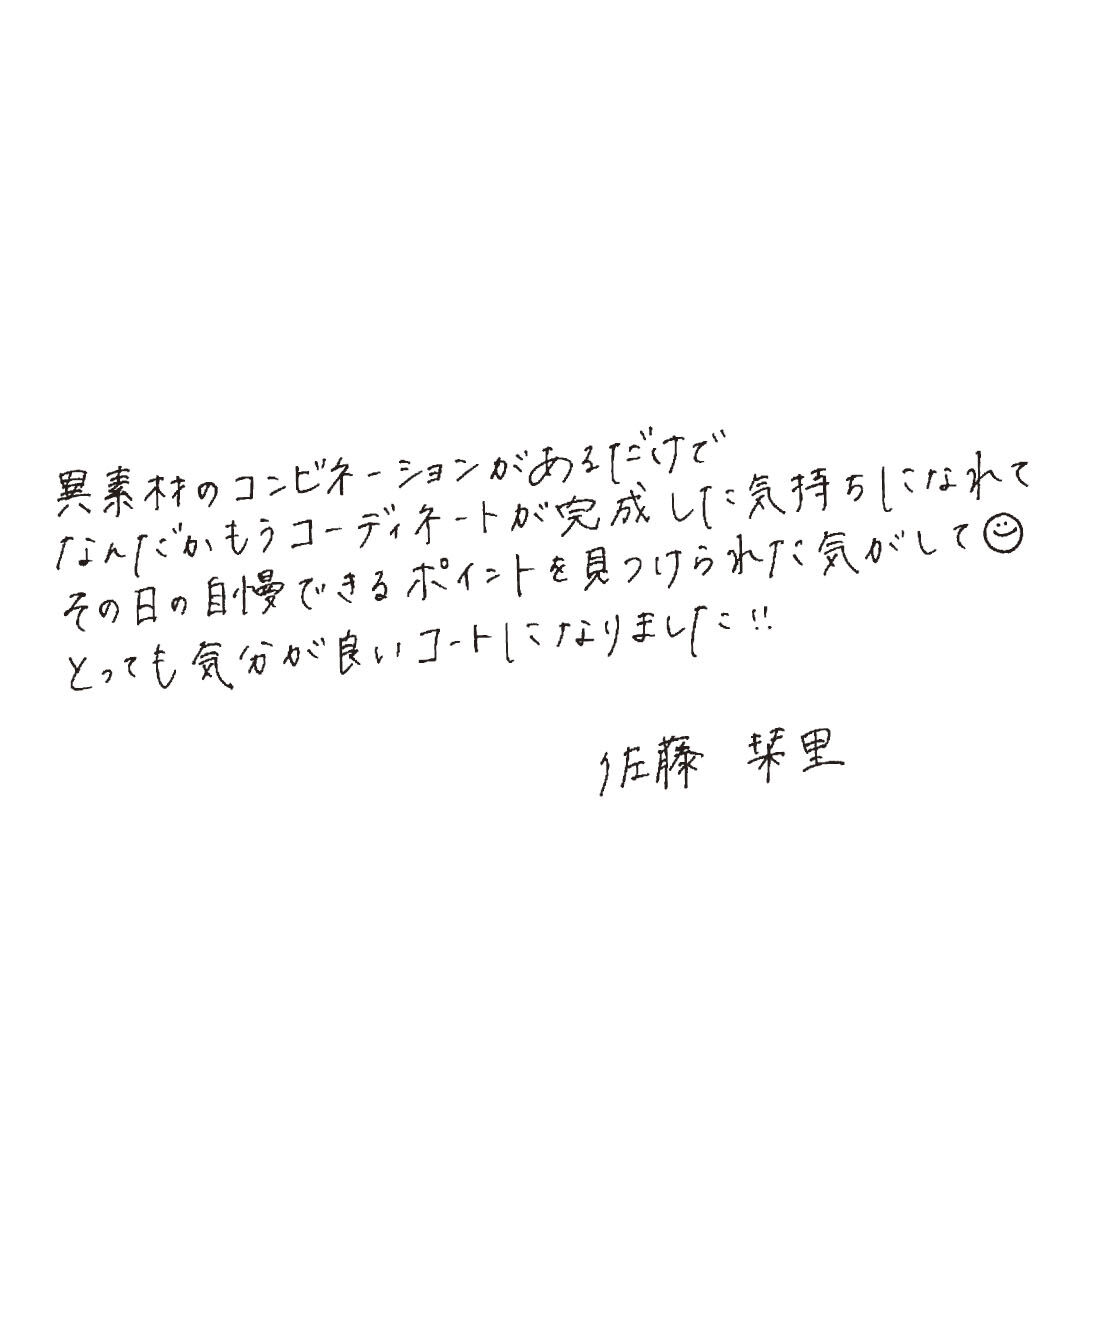 異素材のコンビネーションがあるだけで
なんだかもうコーディネートが完成した気持ちになれて
その日の自慢できるポイントを見つけられた気がして☺
とっても気分が良いコートになりました!!
佐藤 栞里